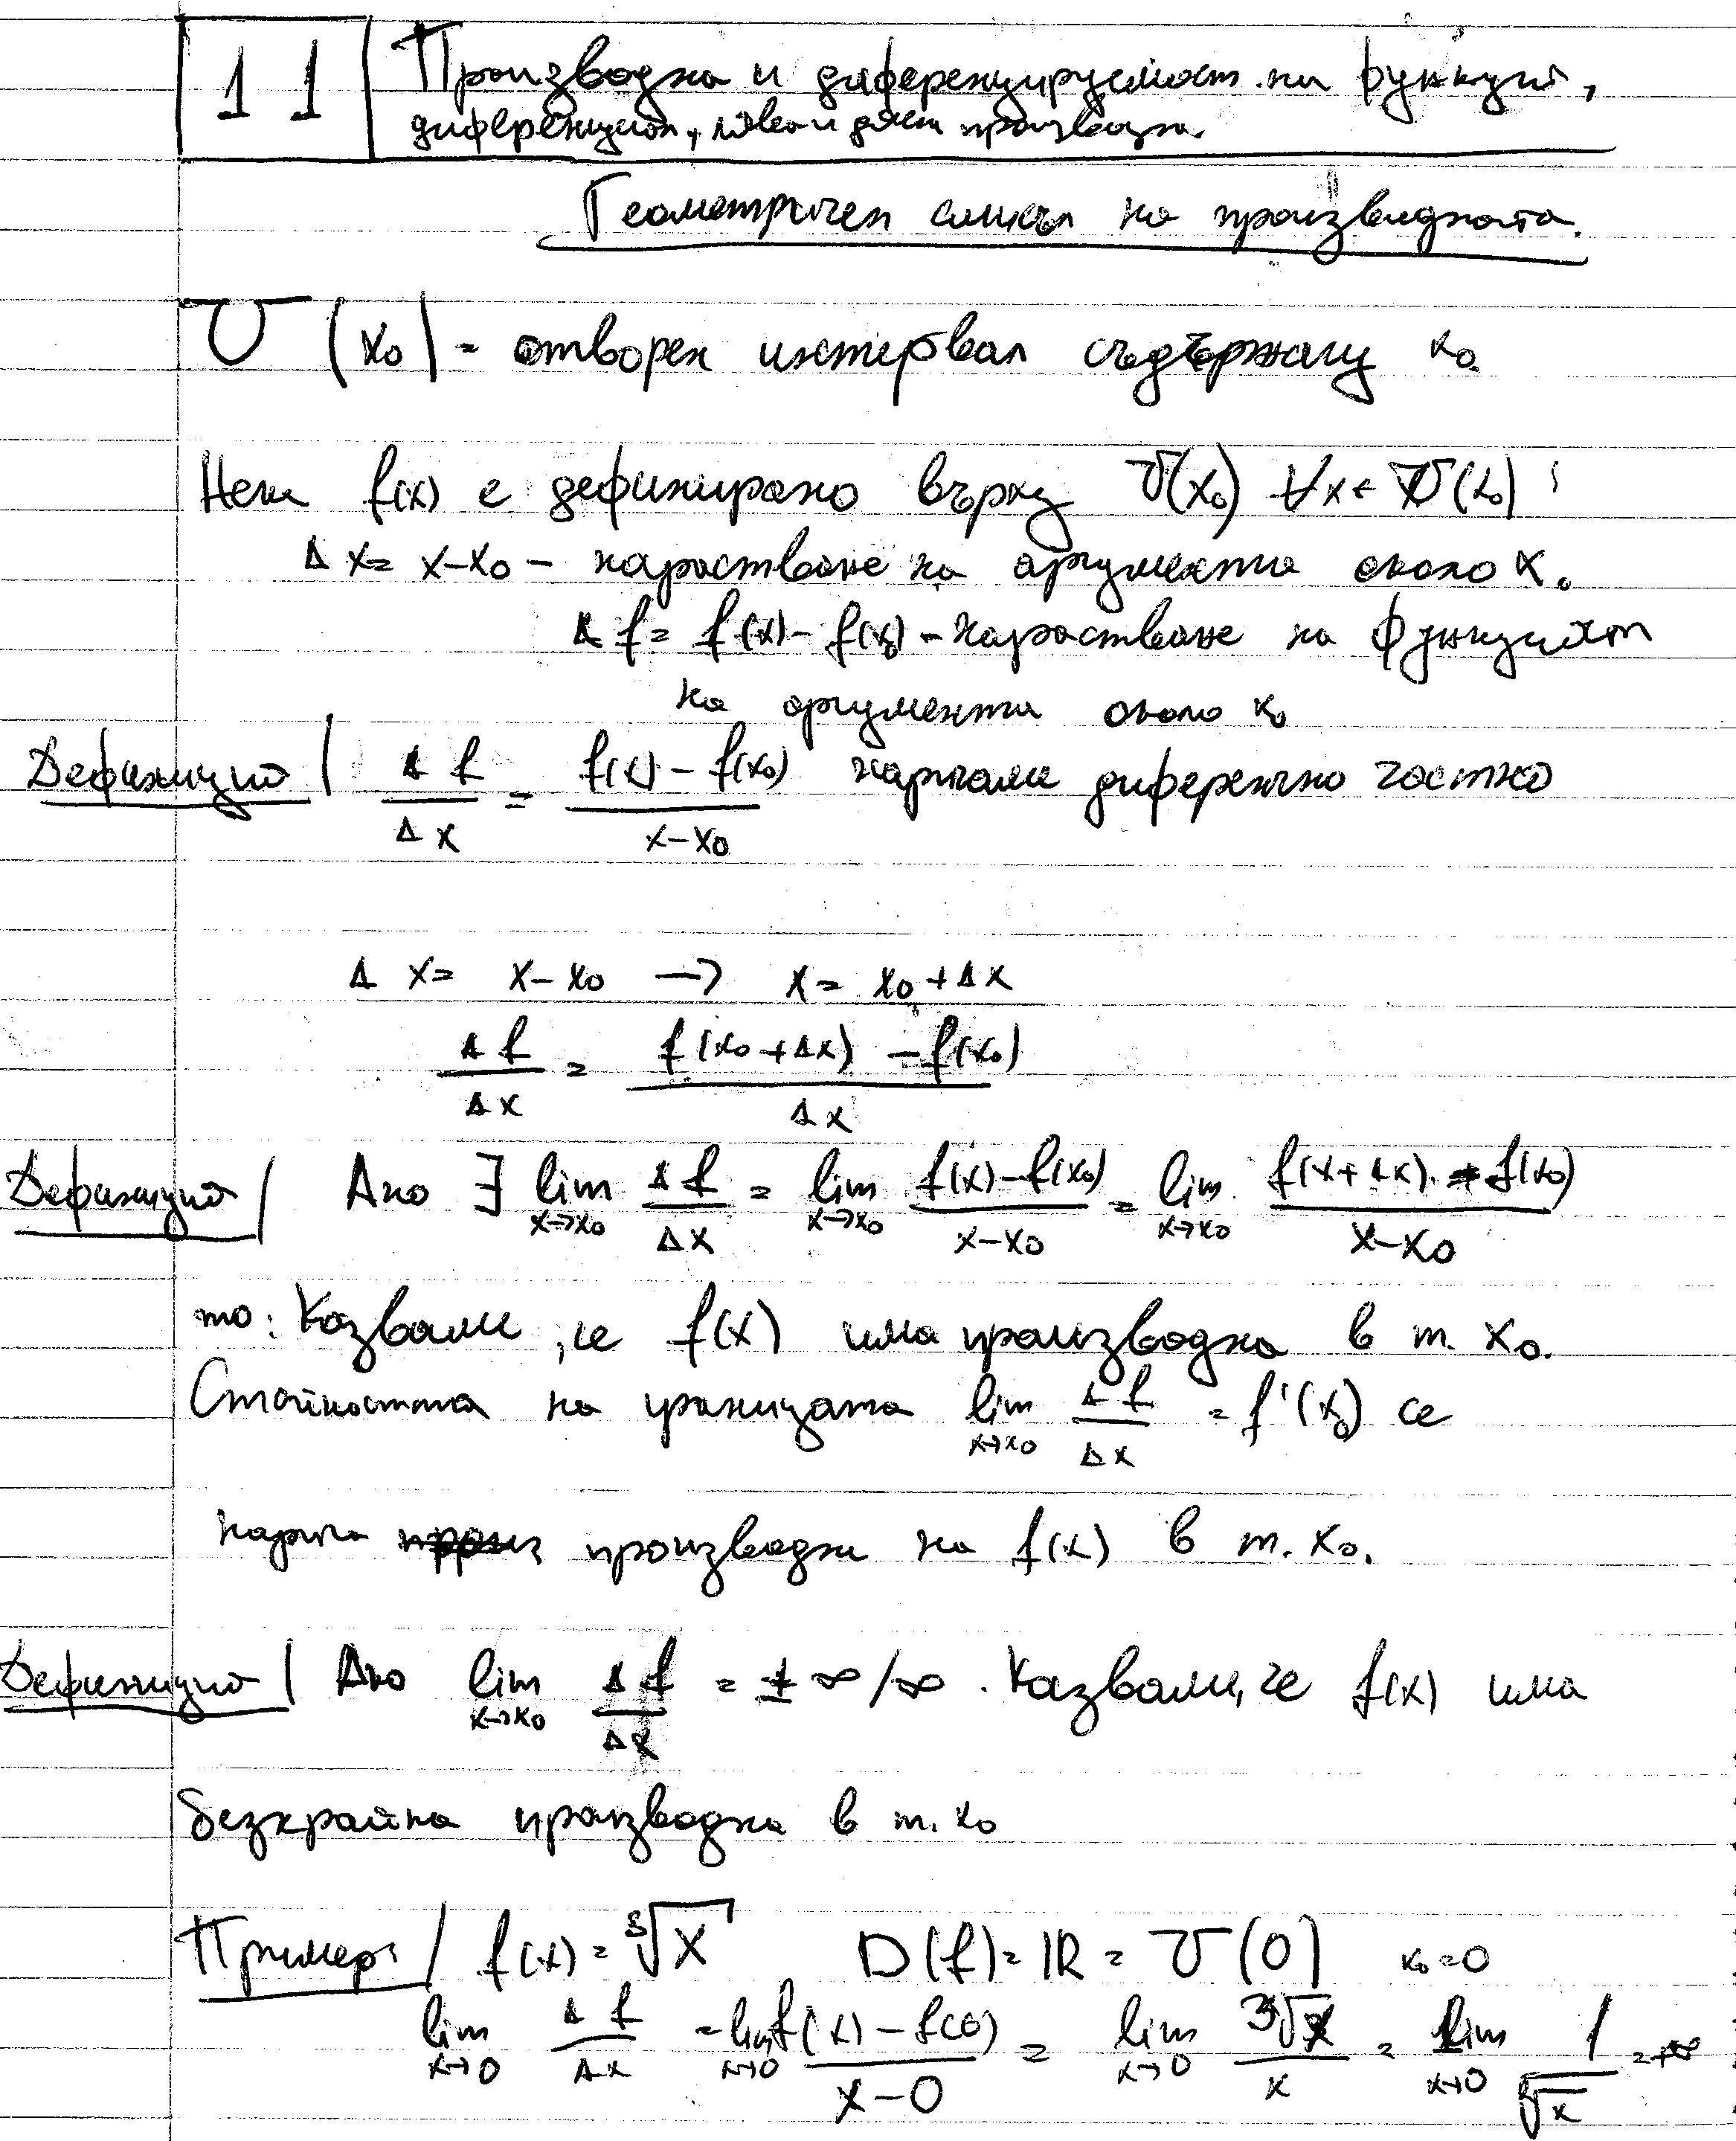 11 Производна и диференцируемост на функция,
диференциал, лява и дясна производна.
Геометричен смисъл на производната.
U(x₀) - отворен интервал съдържащ x₀
Нека f(x) е дефинирана върху U(x₀) ∀x ∈ U(x₀) :
Δx = x-x₀ - нарастване на аргумента около x₀
Δf = f(x) - f(x₀) - нарастване на функцията
на аргумента около x₀
Дефиниция / Δf/Δx = (f(x) - f(x₀))/(x-x₀) наричаме диференчно частно
Δx = x-x₀ → x = x₀+Δx
Δf/Δx = (f(x₀+Δx) - f(x₀))/Δx
Дефиниция / Ако ∃ lim x→x₀ Δf/Δx = lim x→x₀ (f(x)-f(x₀))/(x-x₀) = lim x→x₀ (f(x+Δx) - f(x₀))/(x-x₀)
то: Казваме, че f(x) има производна в т. x₀.
Стойността на границата lim x→x₀ Δf/Δx = f'(x₀) се
нарича производна на f(x) в т. x₀.
Дефиниция / Ако lim x→x₀ Δf/Δx = ±∞/∞. Казваме, че f(x) има
безкрайна производна в т. x₀
Пример: / f(x) = ³√x D(f) = ℝ = U(0) x₀=0
lim x→0 Δf/Δx = lim x→0 (f(x) - f(0))/(x-0) = lim x→0 ³√x/x = lim x→0 1/√x = +∞